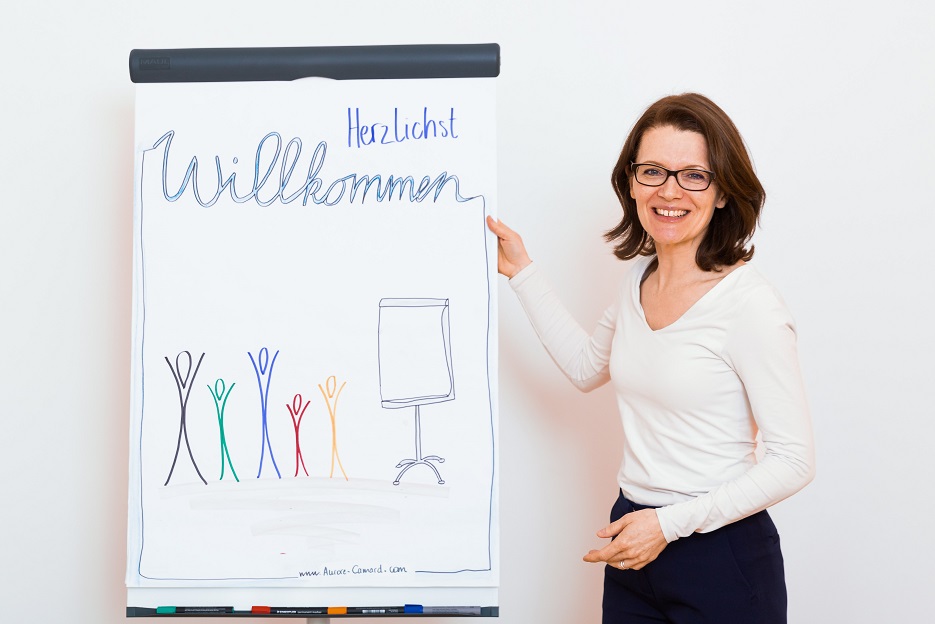 Herzlichst
Willkommen
www.Aurore-Camard.com